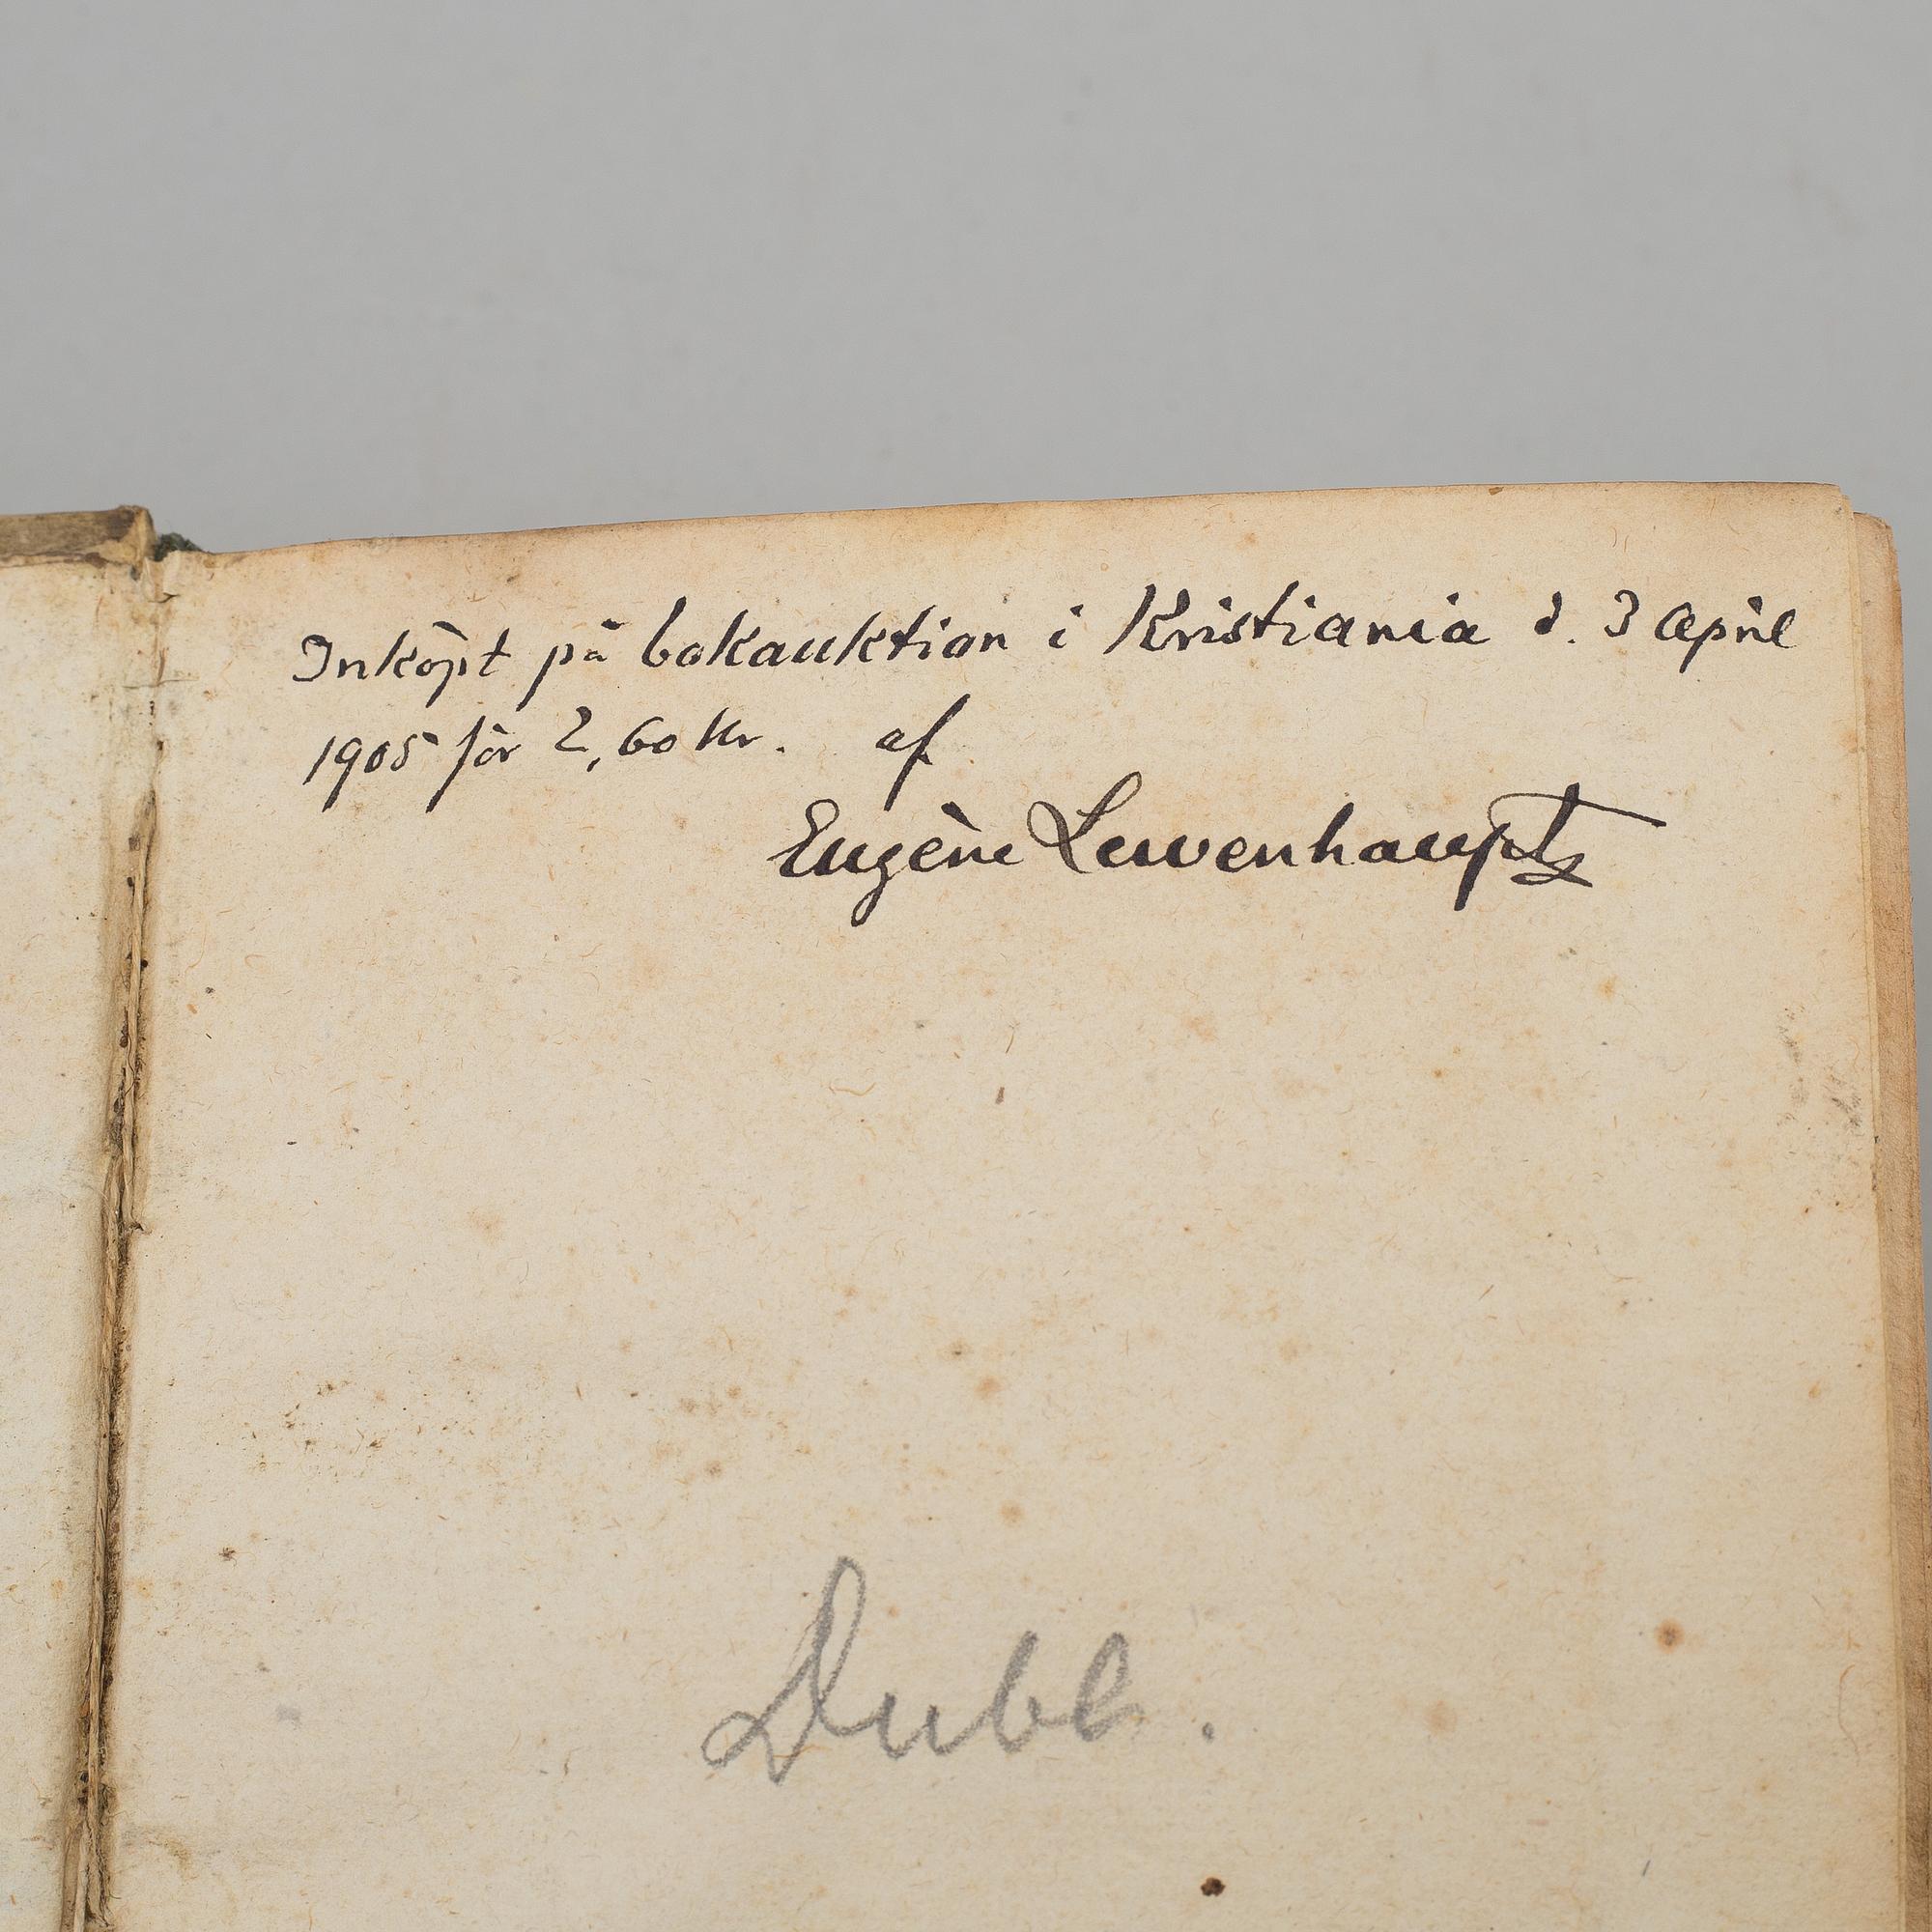 Inköpt på bokauktion i Kristiania d. 3 April
1905 för 2,60 kr. af
Eugène Lewenhaupt
Dubb.